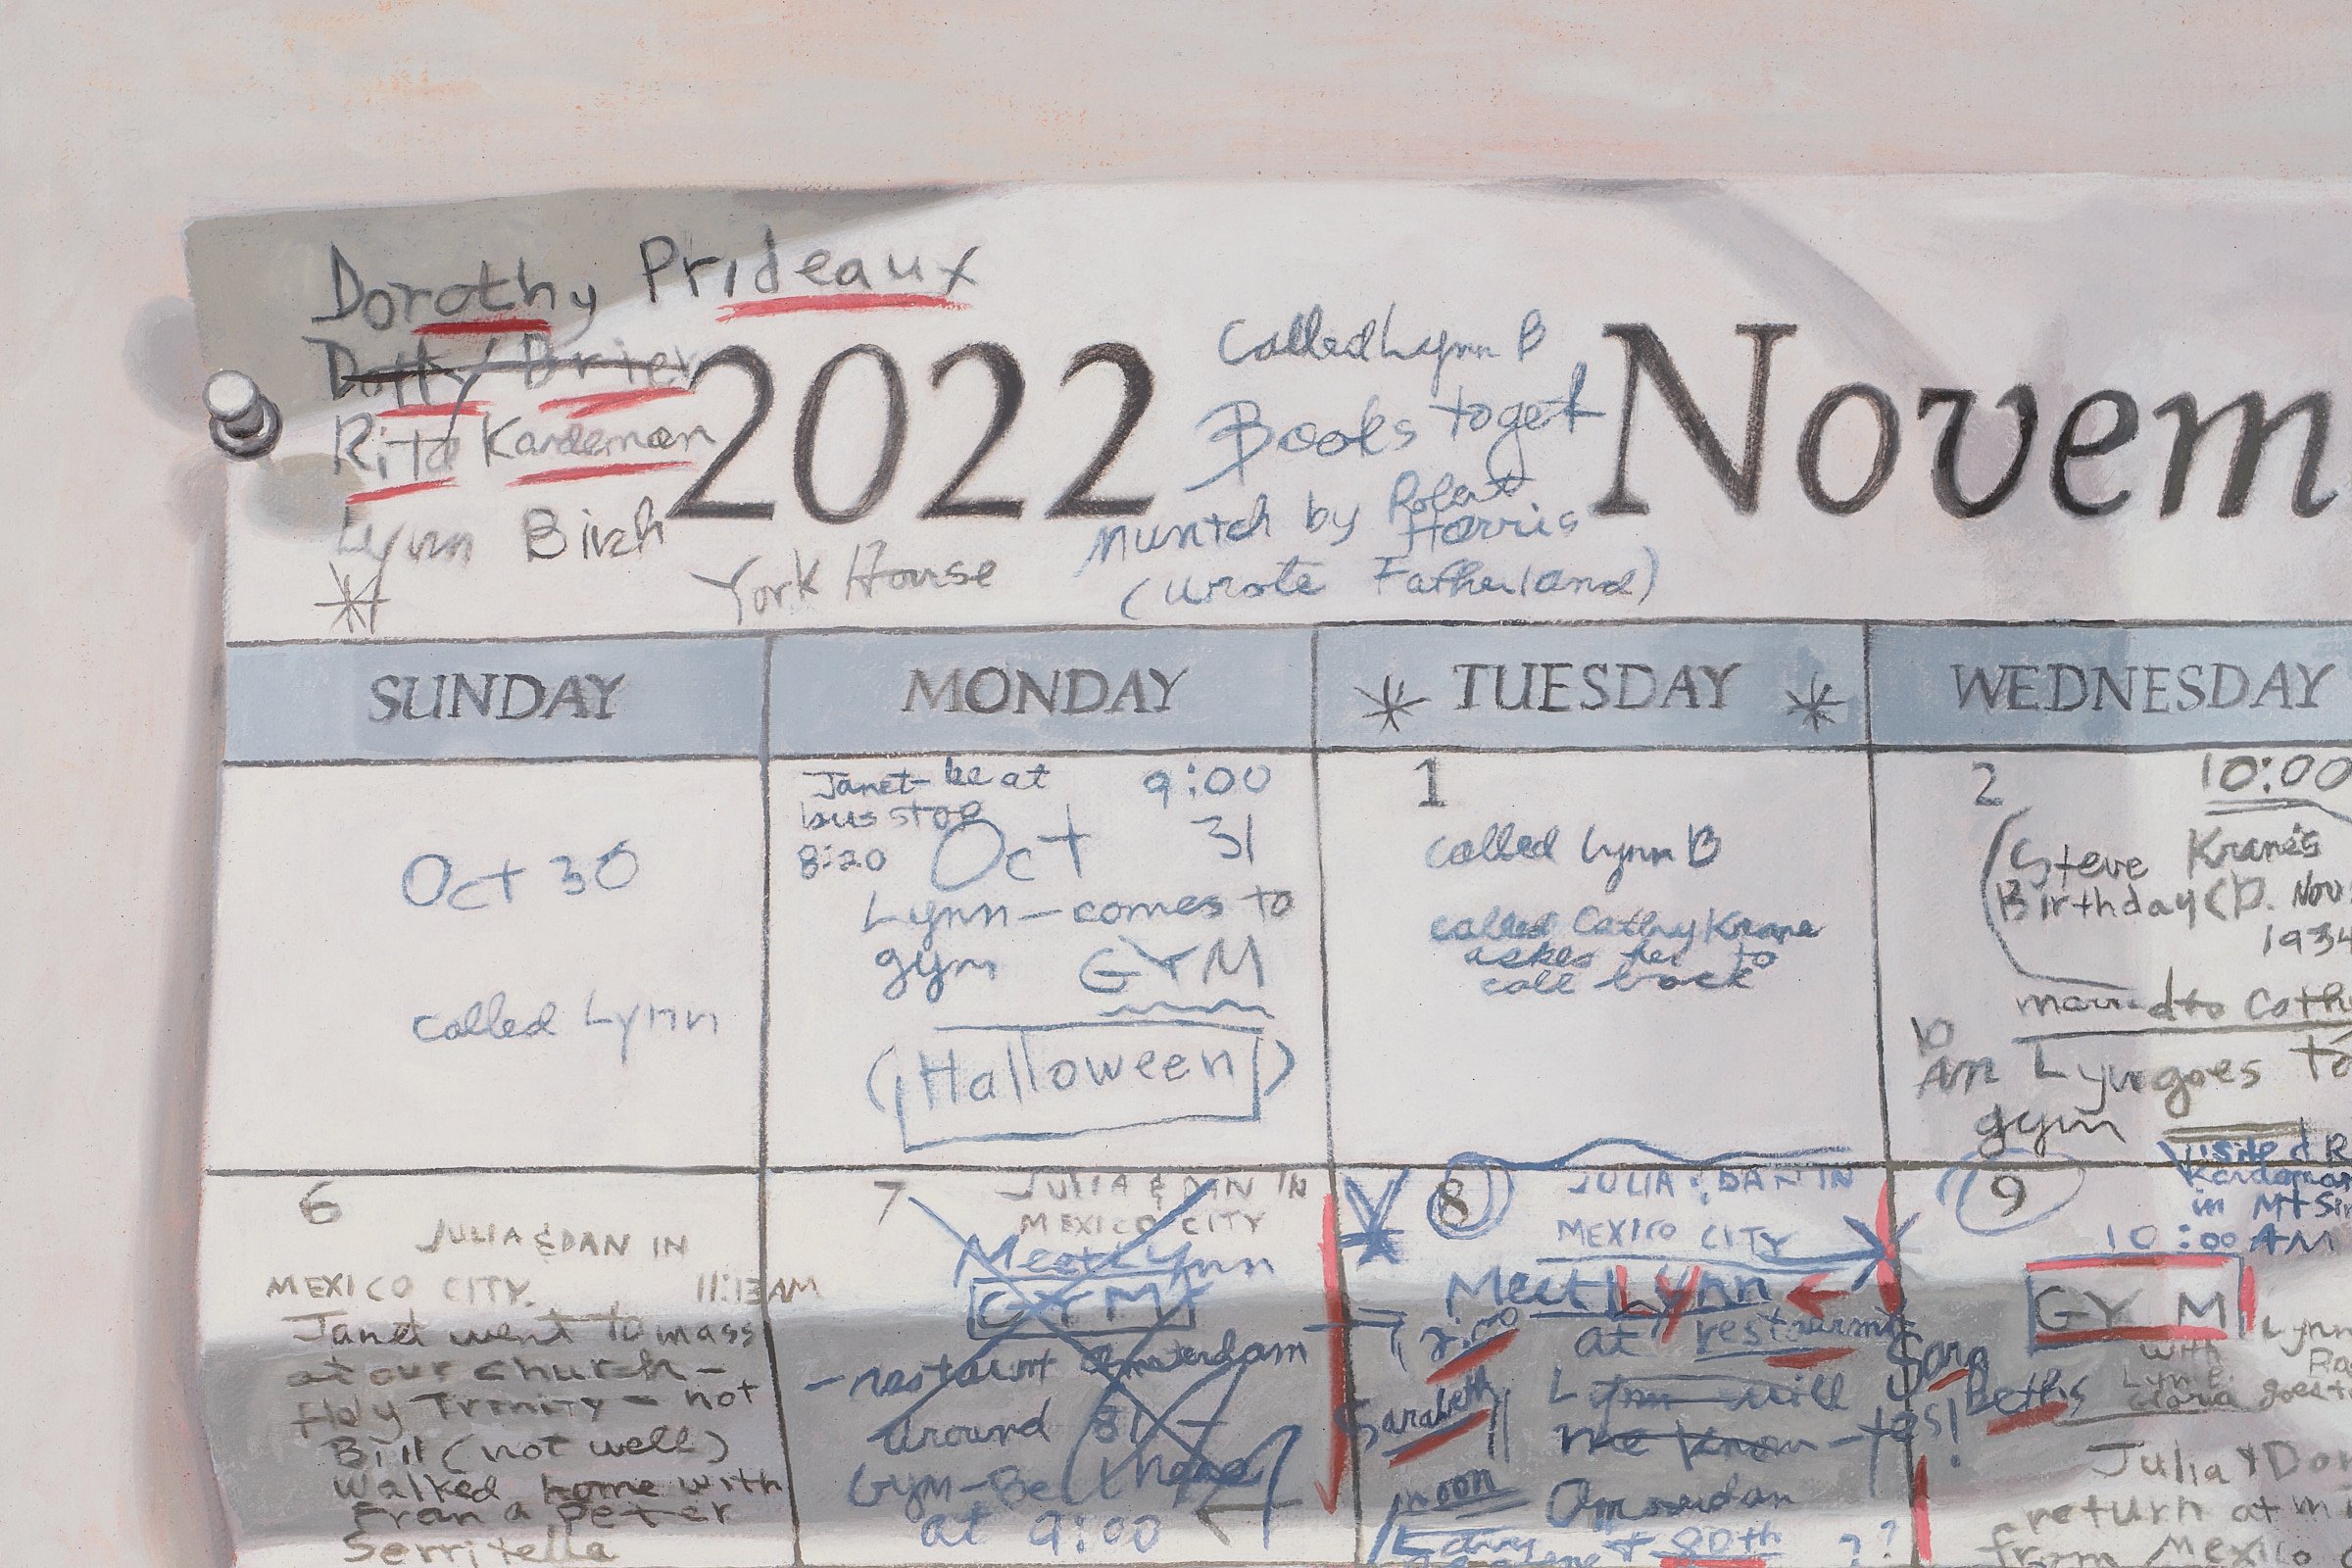 Dorothy Prideaux
Dotty Brier
Rita Kardeman
Lynn Birch
2022
Called Lynn B
Books to get
Muntch by Robert
Harris
(wrote Fatherland)
York House
Novem
SUNDAY
MONDAY
TUESDAY
WEDNESDAY
Oct 30
called Lynn
Janet - be at
bus stop
8:20
9:00
Oct 31
Lynn - comes to
gym GYM
(Halloween)
1
called Lynn B
called Cathy Krane
askes her to
call back
2
10:00
(Steve Krane's
Birthday (D. Nov
1934
married to Cath
10
AM Lynn goes to
gym
Visited R
Kardeman
in Mt Sin
6
JULIA & DAN IN
MEXICO CITY.
11:13 AM
Janet went to mass
at our church -
Holy Trinity - not
Bill (not well)
walked home with
Fran a Peter
Serritella
7
JULIA & DAN IN
MEXICO CITY
Meet Lynn
GYM
- restaurnt Amsterdam
around 81
Gym - Be there
at 9:00
8
JULIA & DAN IN
MEXICO CITY
Meet Lynn
at restaurnt
Sarabeth
Sara
Beths
Lynn will
me know - yes!
noon
Amsterdam
80th ??
9
10:00 AM
GYM
Lynn
with
Lyn B.
Gloria goes t
Julia & Dan
return at mi
from Mexic